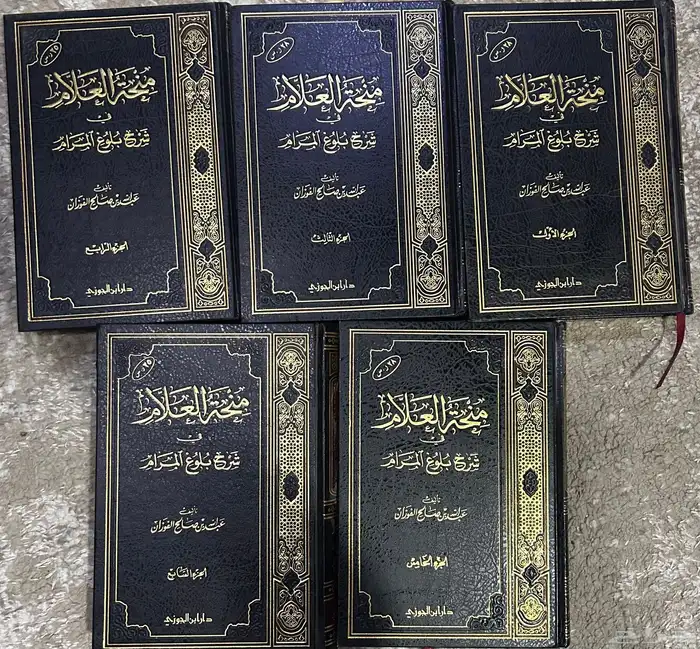 ٦٨ ر.س
منحة العلام
في
شرح بلوغ المرام
تأليف
عبد الله بن صالح الفوزان
الجزء الأول
دار ابن الجوزي
٦٨ ر.س
منحة العلام
في
شرح بلوغ المرام
تأليف
عبد الله بن صالح الفوزان
الجزء الثالث
دار ابن الجوزي
٦٥ ر.س
منحة العلام
في
شرح بلوغ المرام
تأليف
عبد الله بن صالح الفوزان
الجزء الرابع
دار ابن الجوزي
٦٨ ر.س
منحة العلام
في
شرح بلوغ المرام
تأليف
عبد الله بن صالح الفوزان
الجزء الخامس
دار ابن الجوزي
٦٥ ر.س
منحة العلام
في
شرح بلوغ المرام
تأليف
عبد الله بن صالح الفوزان
الجزء السابع
دار ابن الجوزي